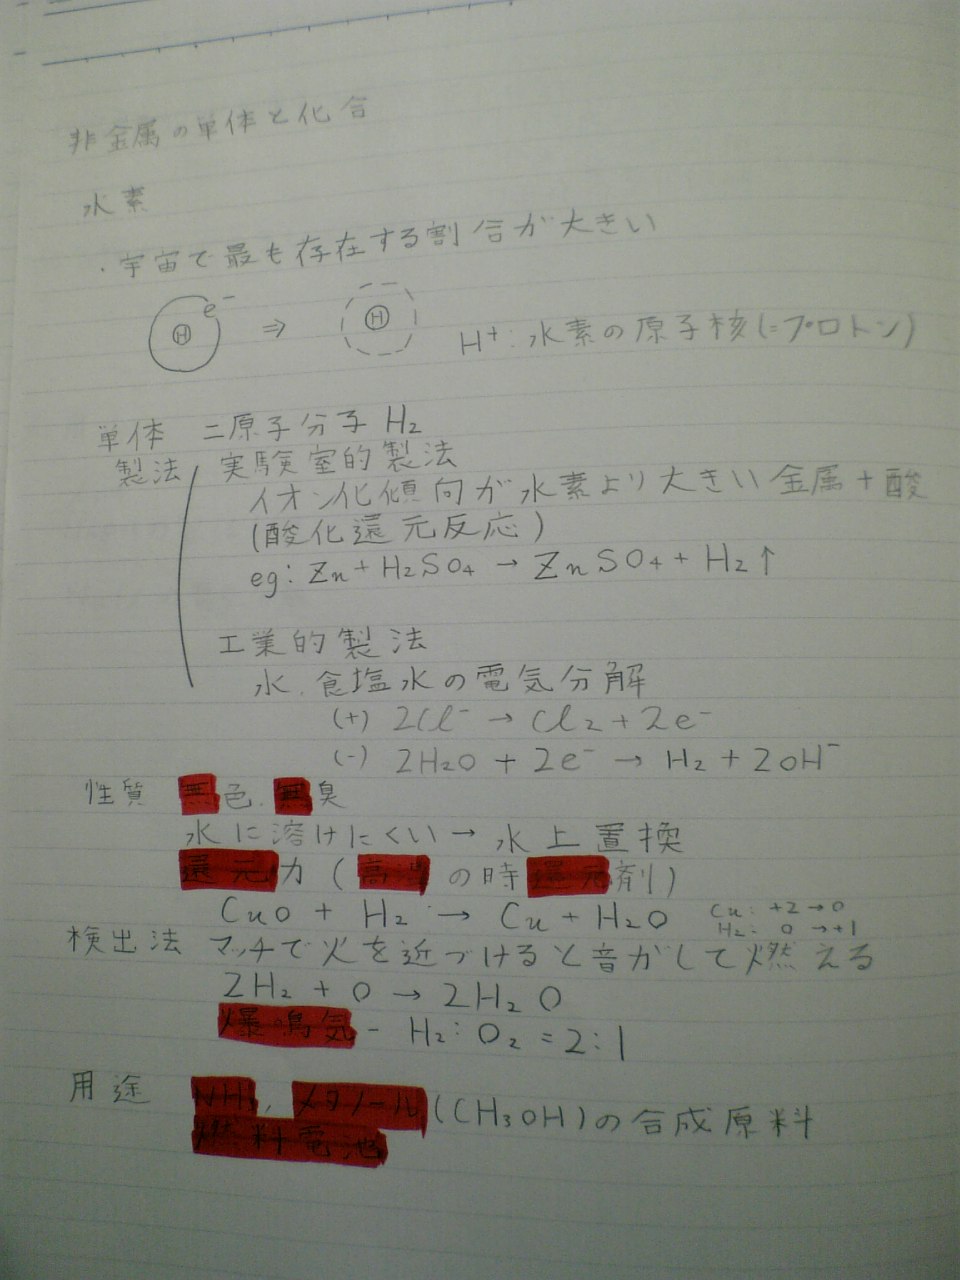 非金属の単体と化合
水素
・宇宙で最も存在する割合が大きい
H e⁻ ⇒ H H⁺: 水素の原子核(=プロトン)
単体 二原子分子 H₂
製法 実験室的製法
イオン化傾向が水素より大きい金属+酸
(酸化還元反応)
eg: Zn + H₂SO₄ → ZnSO₄ + H₂↑
工業的製法
水.食塩水の電気分解
(+) 2Cl⁻ → Cl₂ + 2e⁻
(-) 2H₂O + 2e⁻ → H₂ + 2OH⁻
性質 無色.無臭
水に溶けにくい→水上置換
還元力(高温の時還元剤)
CuO + H₂ → Cu + H₂O Cu: +2→0
H₂: 0→+1
検出法 マッチで火を近づけると音がして燃える
2H₂ + O → 2H₂O
爆鳴気 - H₂:O₂=2:1
用途 NH₃, メタノール(CH₃OH)の合成原料
燃料電池